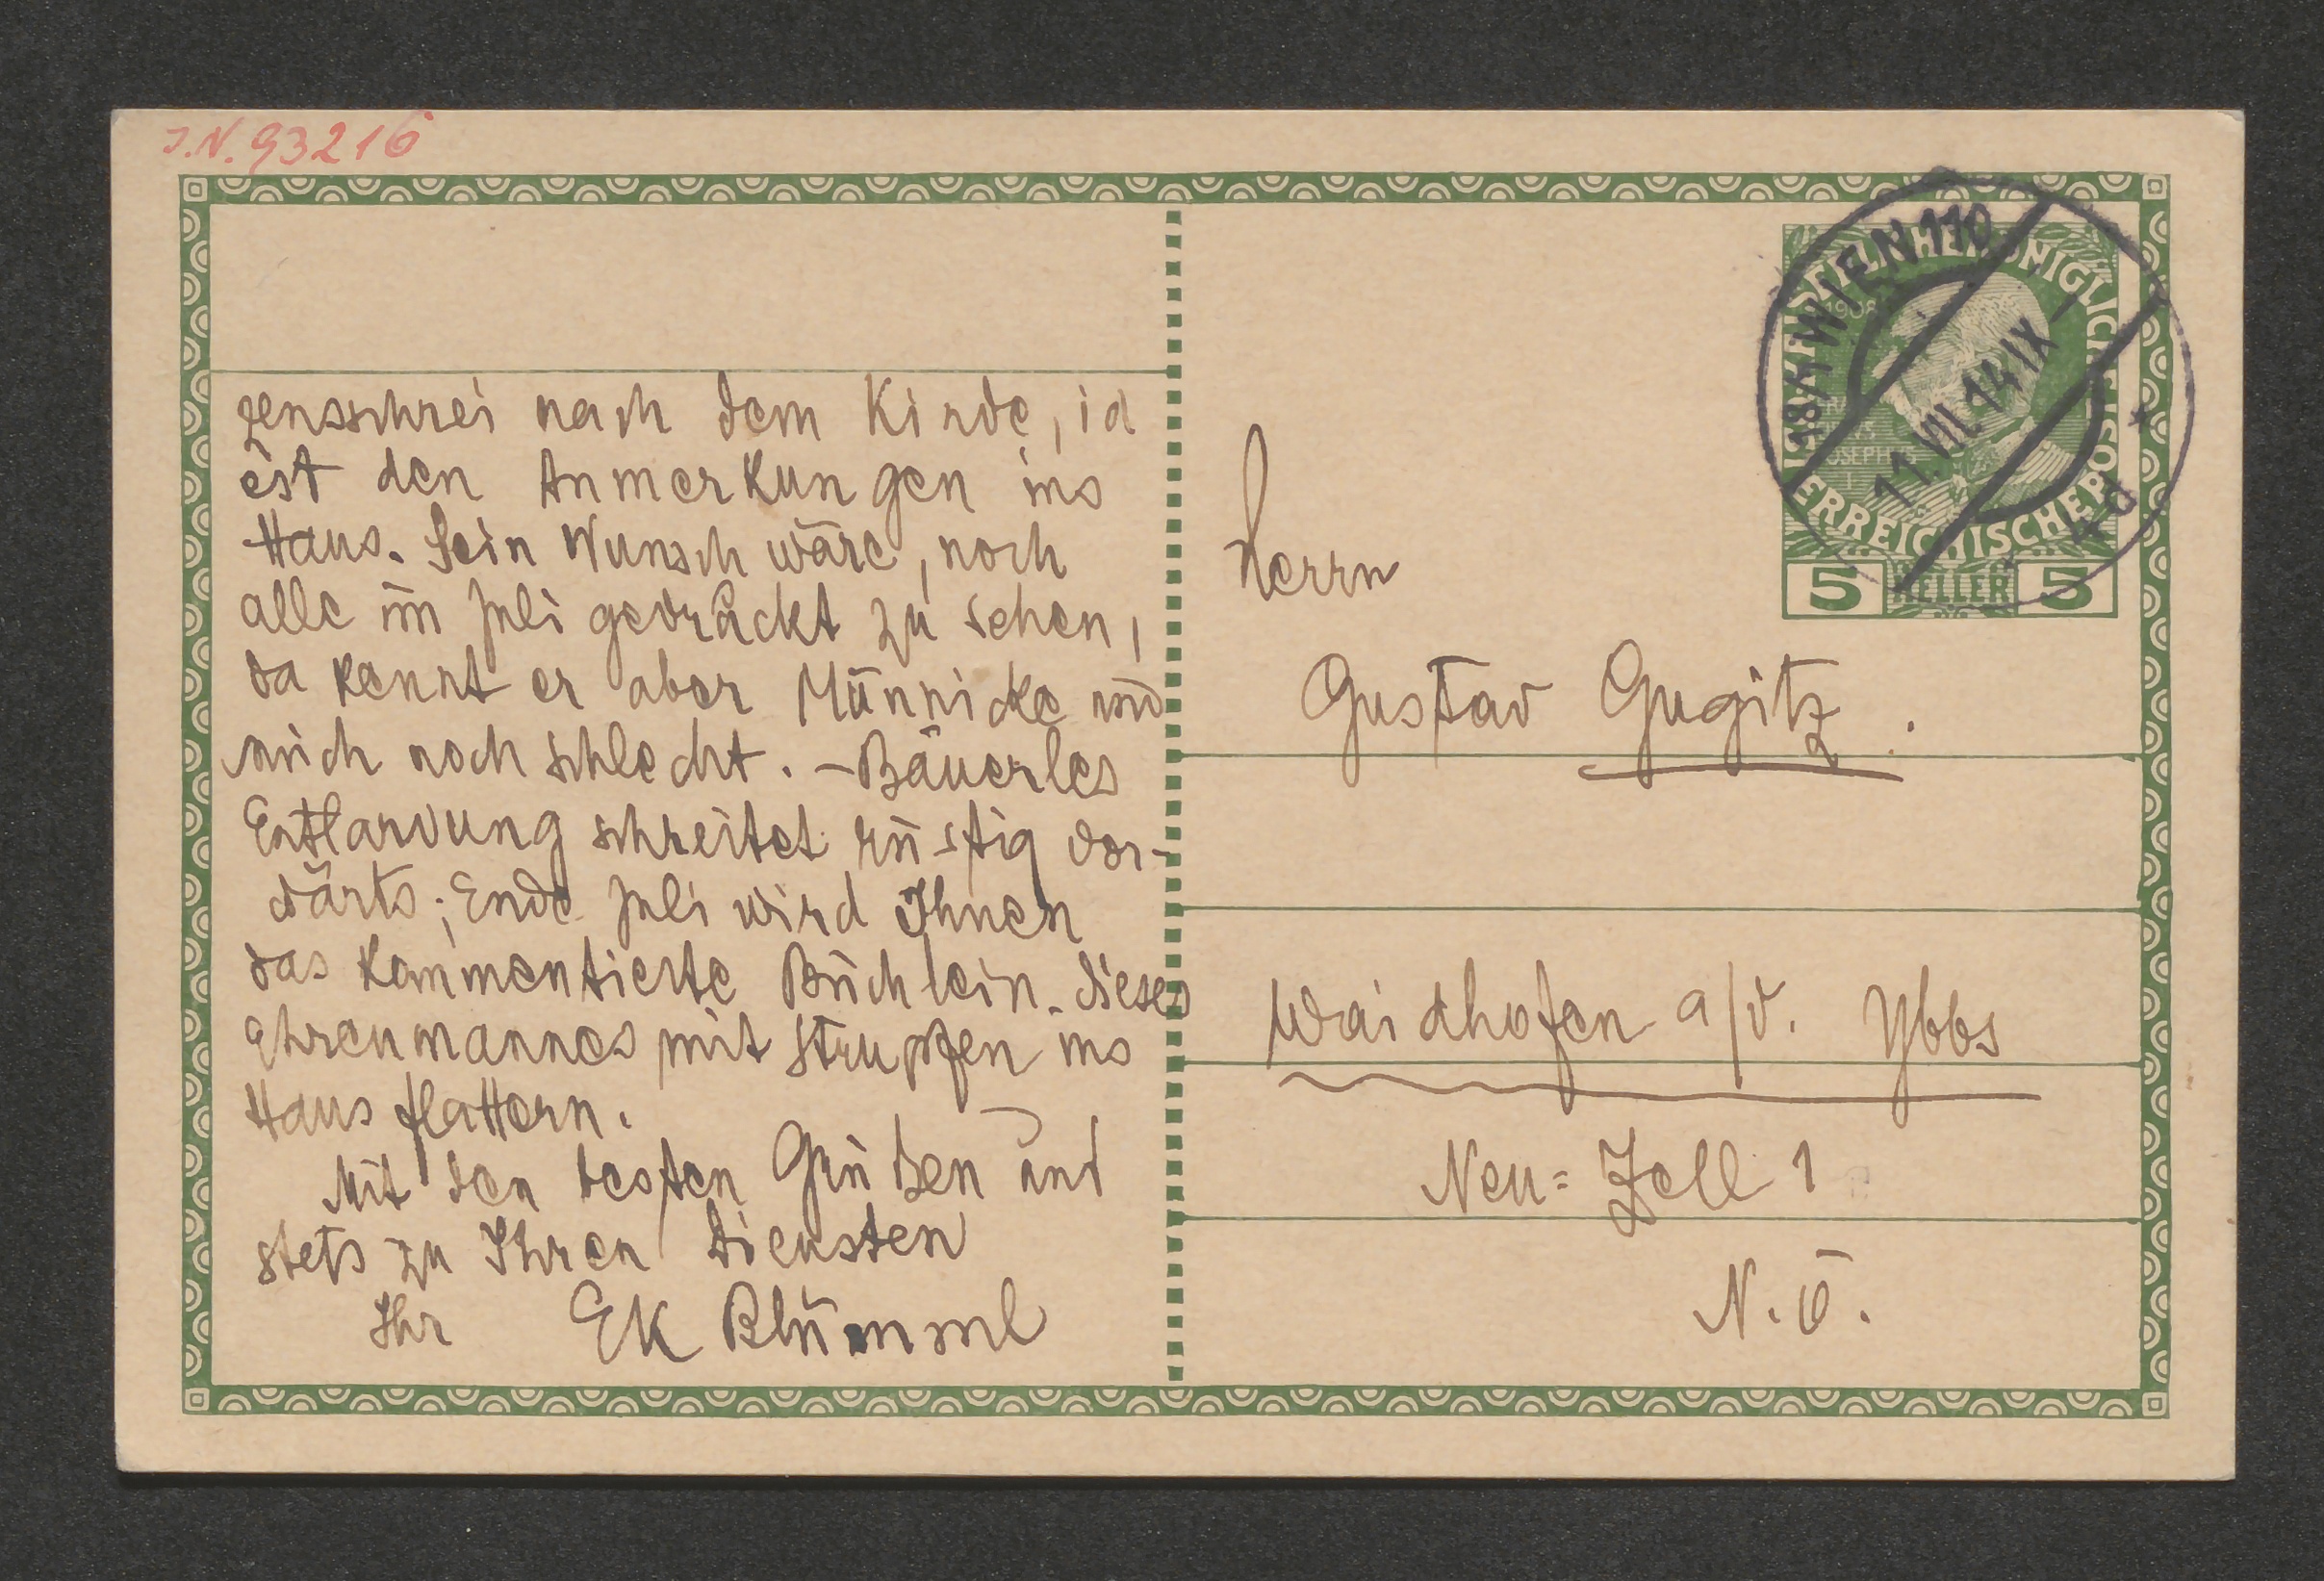 J.N. 93216
zensschrei nach dem Kinde, id
est den Anmerkungen ins
Haus. Sein Wunsch wäre, noch
alle im Juli gedruckt zu sehen,
da kennt er aber Münnicke und
mich noch schlecht. – Bäuerles
Entlarvung schreitet rüstig vor-
wärts; Ende Juli wird Ihnen
das kommentierte Büchlein dieses
Ehrenmannes mit Strupfen ins
Haus flattern.
Mit den besten Grüßen und
stets zu Ihren Diensten
Ihr EK Blümml
18/1 WIEN 110
11. VII. 14 IX –
* 4d
KAISERLICHE KÖNIGLICHE ÖSTERREICHISCHE POST
1908
5 HELLER 5
Herrn
Gustav Gugitz.
Waidhofen a/d. Ybbs
Neu=Zell 1
N.Ö.